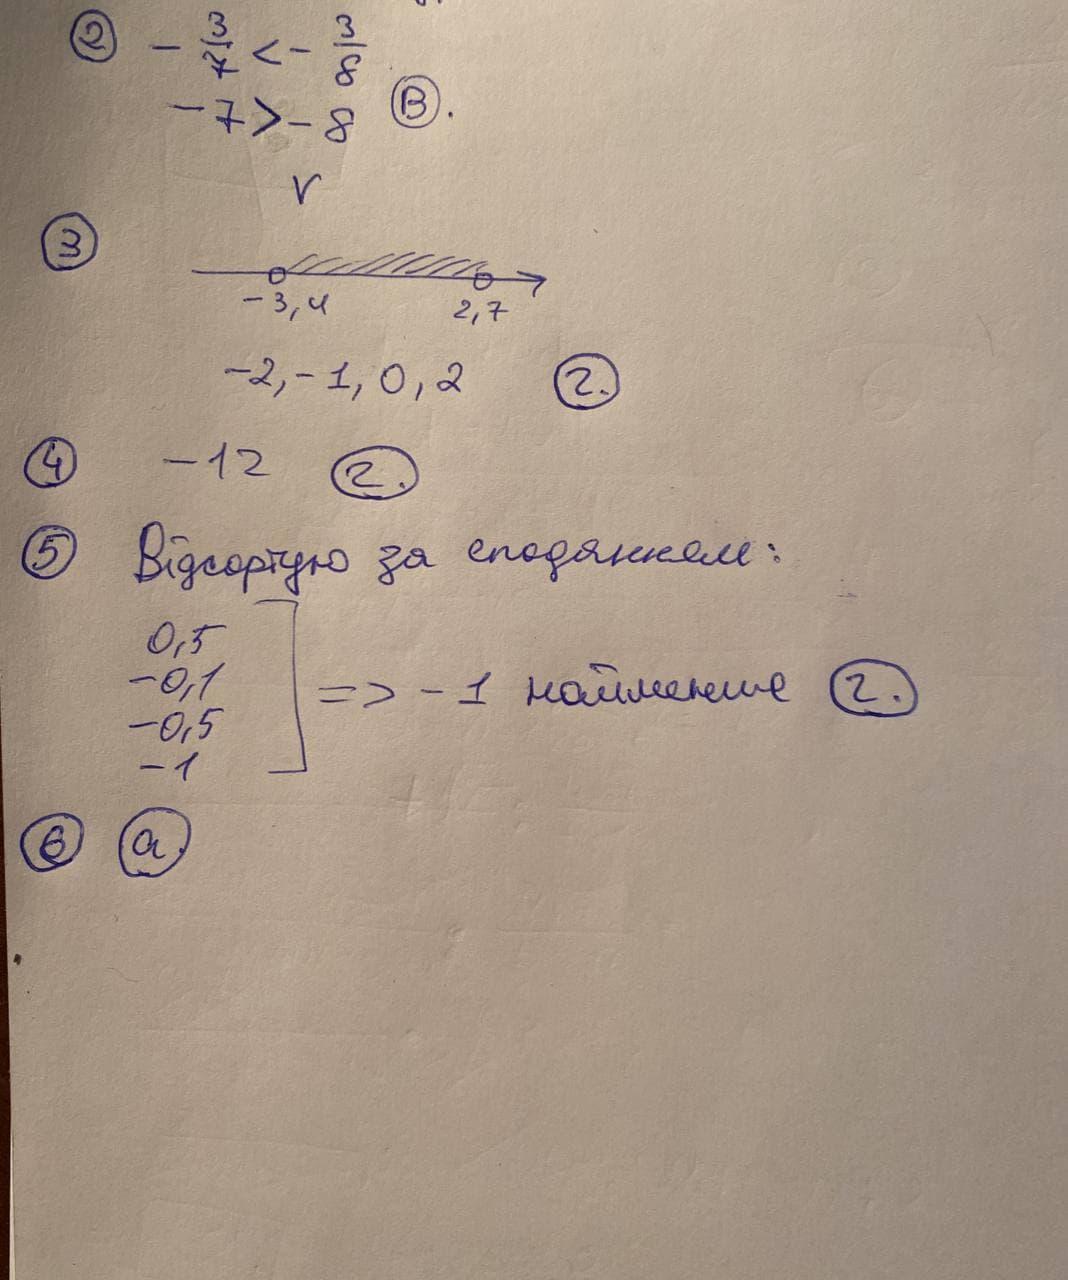 ② - 3/7 < - 3/8
-7 > -8 В.
V
③
-3,4 2,7
-2, -1, 0, 2 г.
④ -12 г.
⑤ Відсортую за спаданням:
0,5
-0,1
-0,5
-1
=> -1 найменше г.
⑥ а.